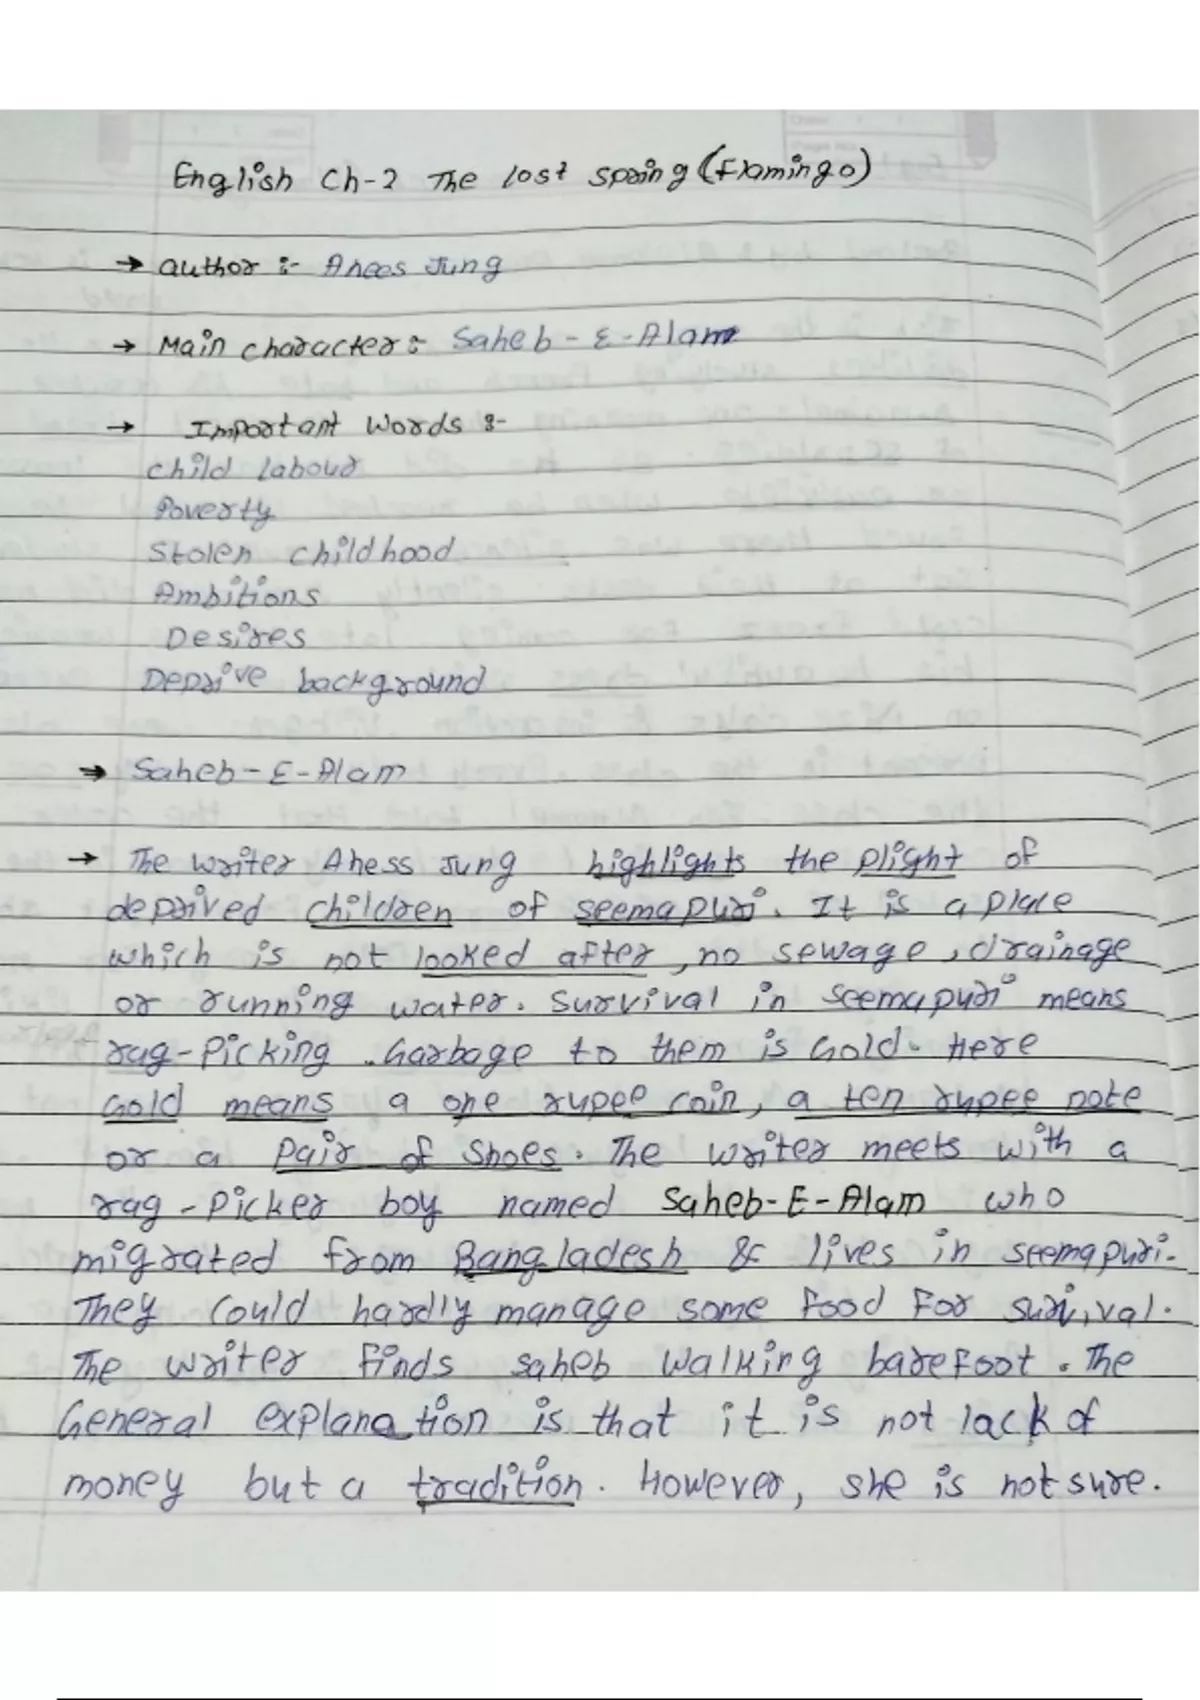 English Ch-2 The lost spring (Flamingo)
→ author :- Anees Jung
→ Main character :- Saheb-E-Alam
→ Important Words :-
child labour
Poverty
Stolen childhood
Ambitions
Desires
Deprive background
→ Saheb-E-Alam
→ The writer Aness Jung highlights the plight of
deprived children of seemapuri. It is a place
which is not looked after, no sewage, drainage
or running water. Survival in seemapuri means
rag-Picking. Garbage to them is Gold. Here
Gold means a one rupee coin, a ten rupee note
or a Pair of Shoes. The writer meets with a
rag-Picker boy named Saheb-E-Alam who
migrated from Bangladesh & lives in seemapuri.
They could hardly manage some food For survival.
The writer Finds saheb walking bareFoot. The
General explanation is that it is not lack of
money but a tradition. However, she is not sure.